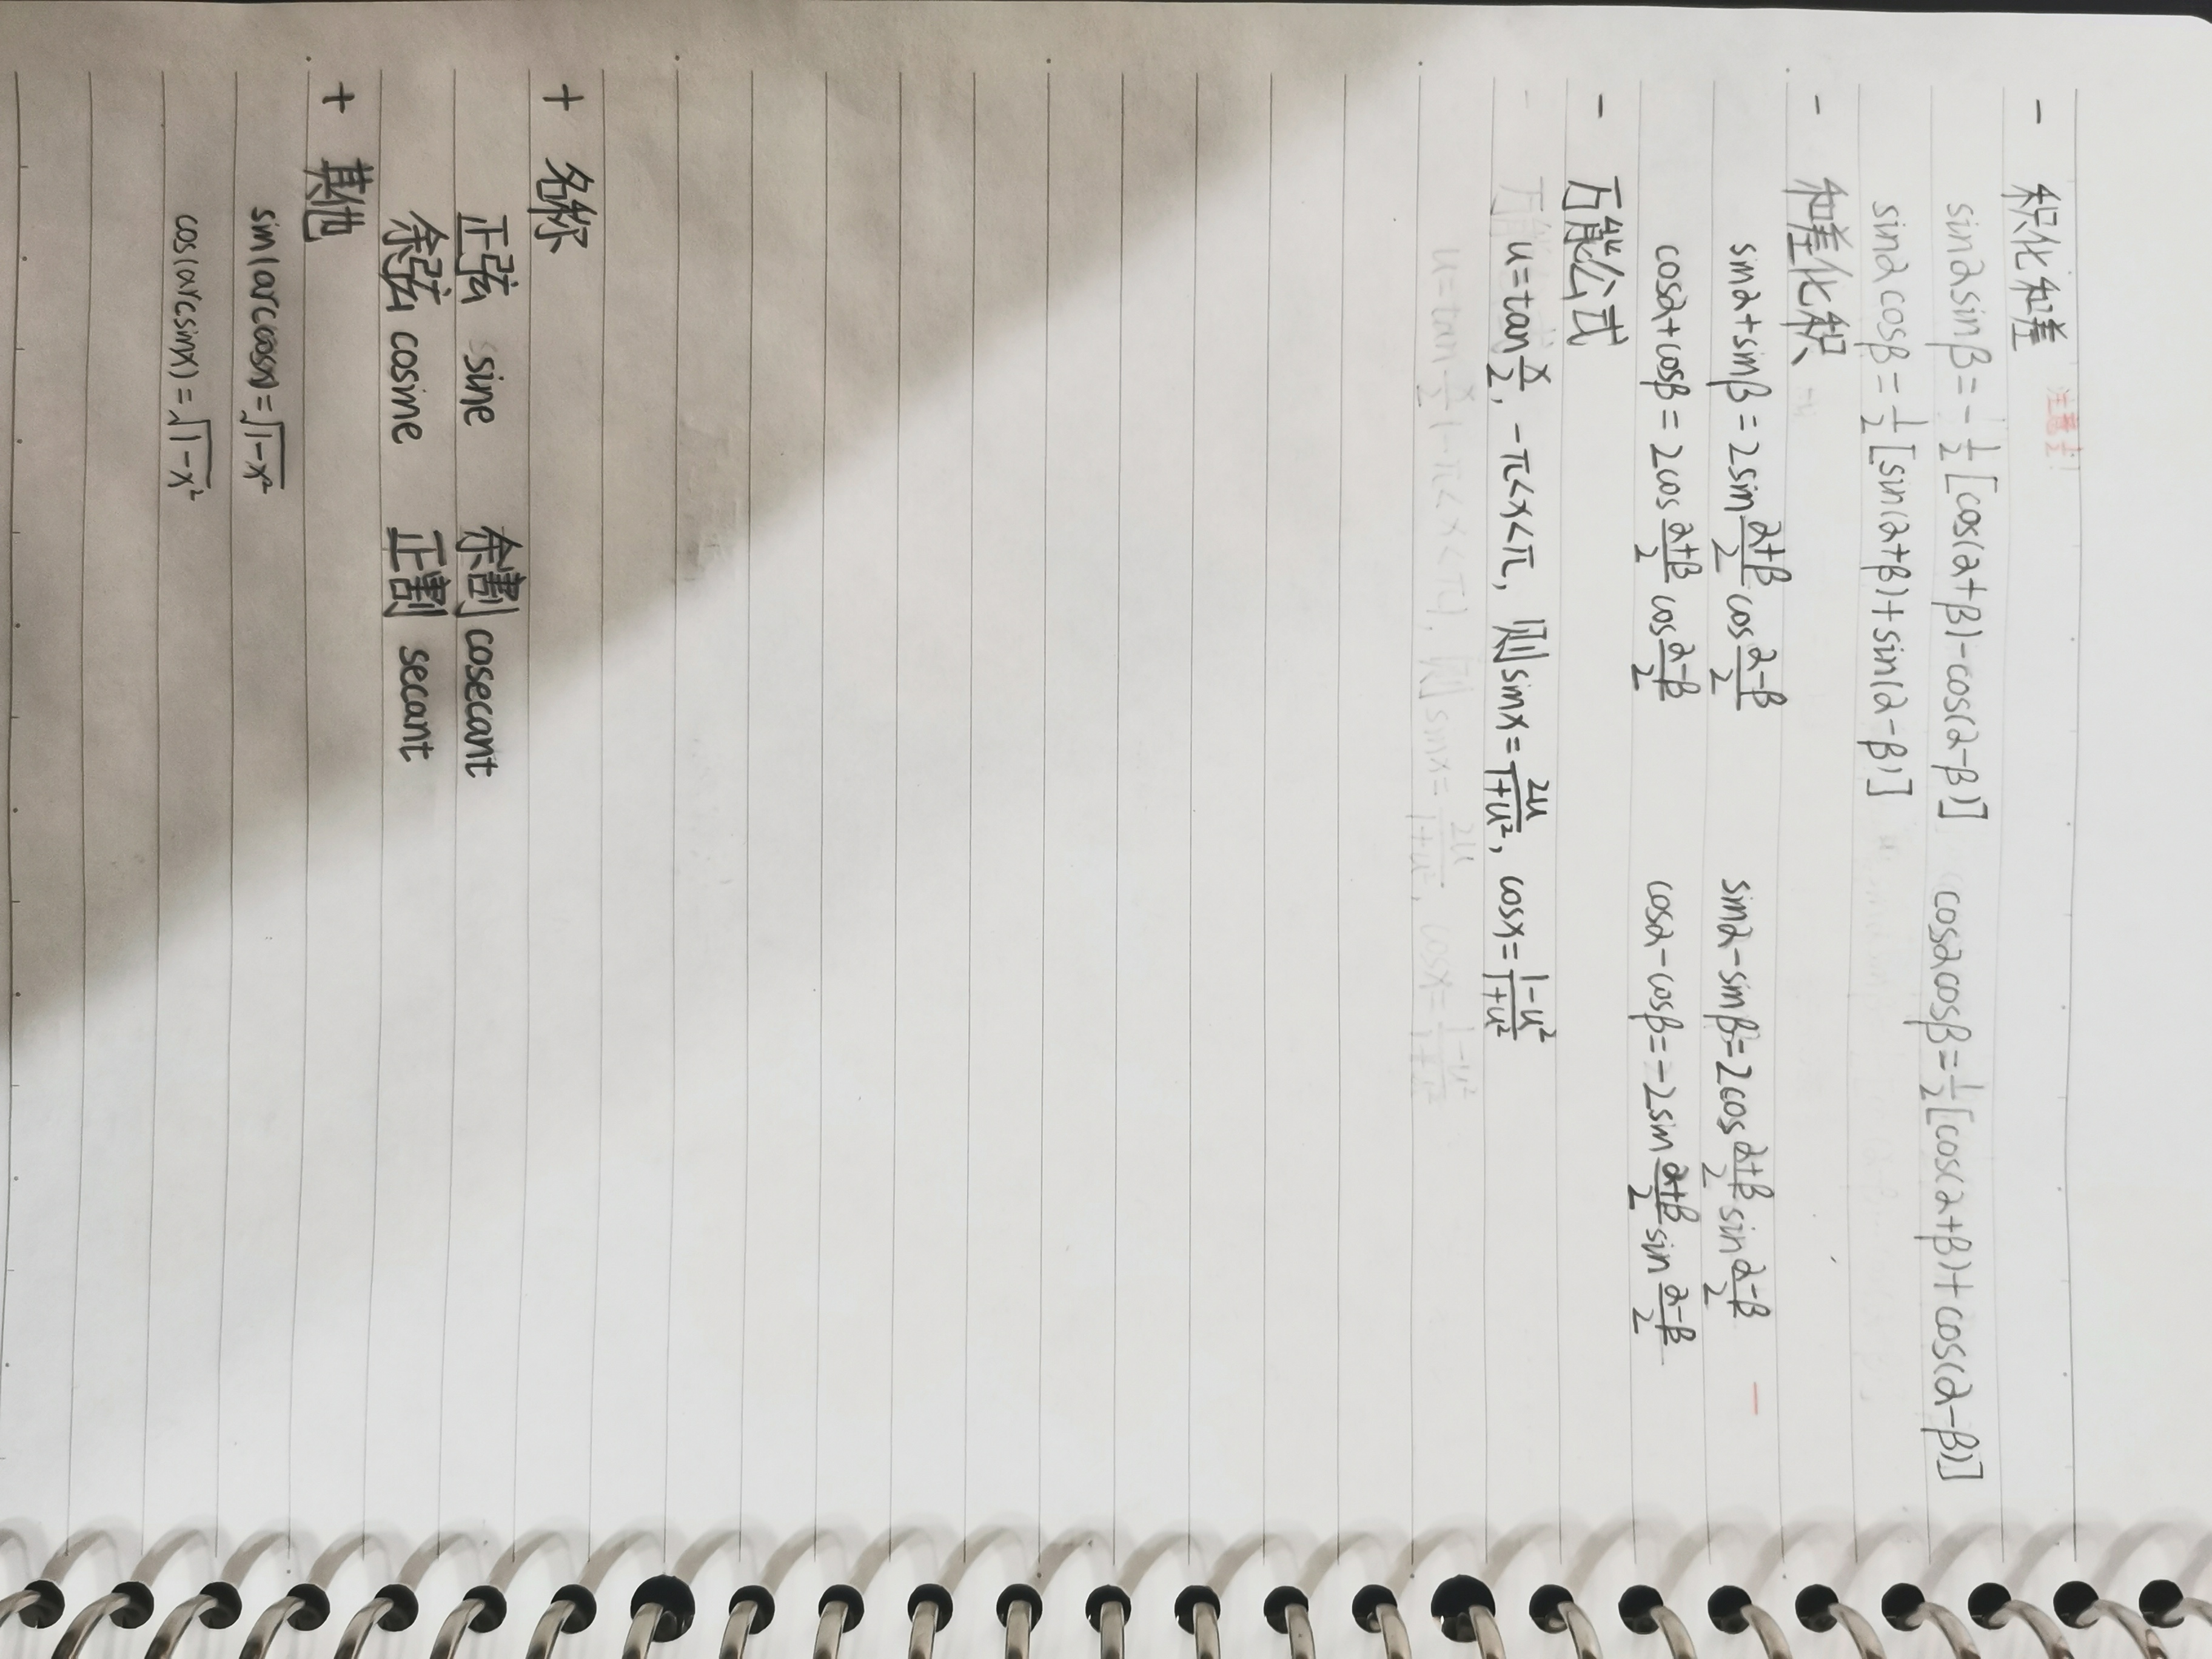 注意½!
- 积化和差
sinαsinβ=-½[cos(α+β)-cos(α-β)] cosαcosβ=½[cos(α+β)+cos(α-β)]
sinαcosβ=½[sin(α+β)+sin(α-β)]
- 和差化积
sinα+sinβ=2sin(α+β)/2 cos(α-β)/2 sinα-sinβ=2cos(α+β)/2 sin(α-β)/2
cosα+cosβ=2cos(α+β)/2 cos(α-β)/2 cosα-cosβ=-2sin(α+β)/2 sin(α-β)/2
- 万能公式
u=tan x/2, -π<x<π, 则sinx=2u/(1+u²), cosx=(1-u²)/(1+u²)
u=tan x/2 (-π<x<π), 则sinx=2u/(1+u²), cosx=(1-u²)/(1+u²)
+ 名称
正弦 sine 余割 cosecant
余弦 cosine 正割 secant
+ 其他
sin(arccosx)=√(1-x²)
cos(arcsinx)=√(1-x²)